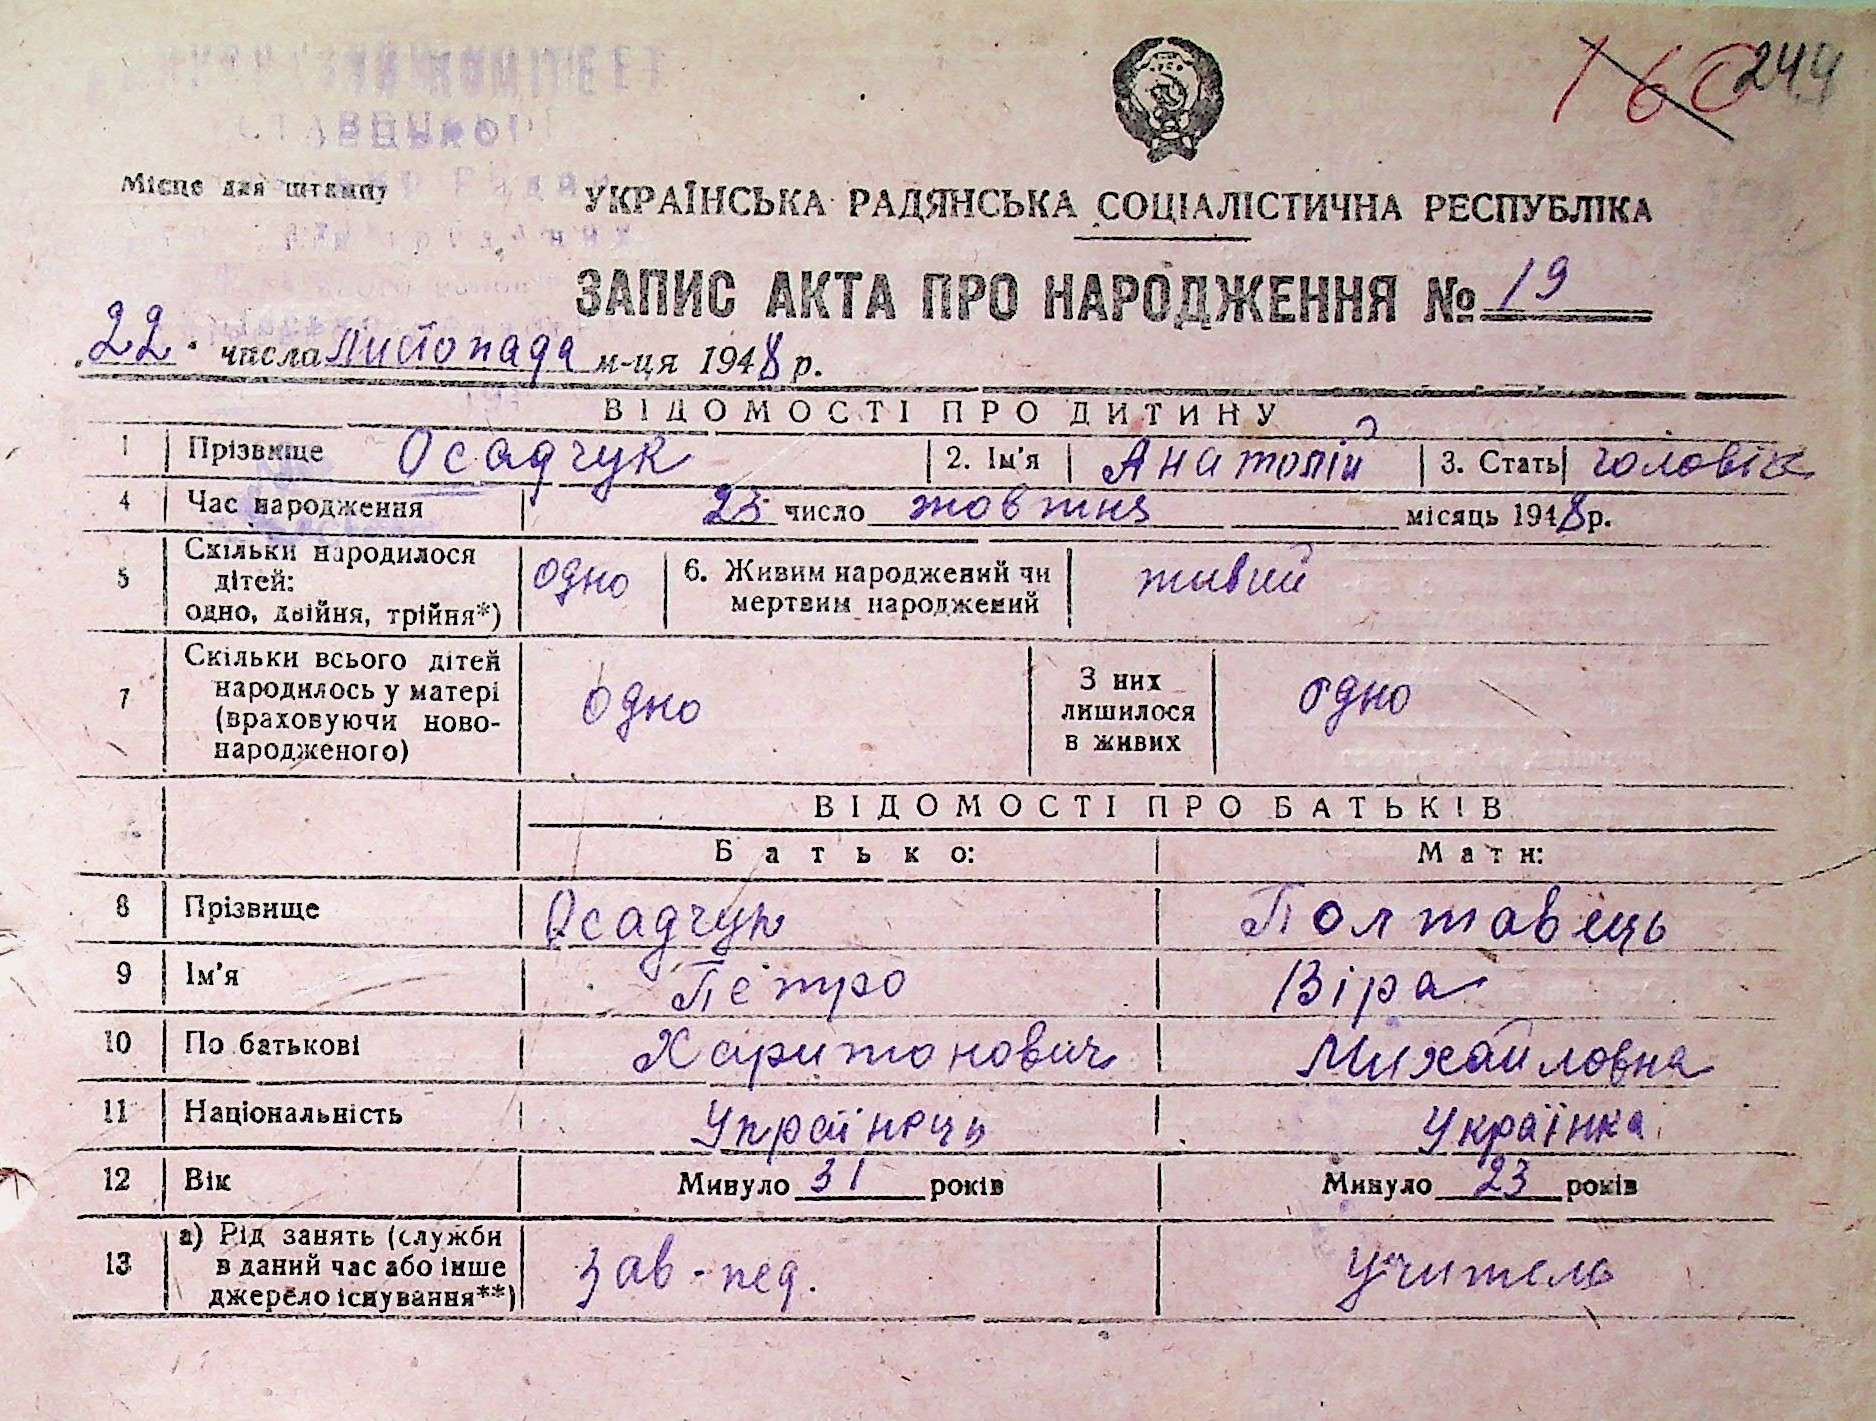 160 244
Місце для штампу
УКРАЇНСЬКА РАДЯНСЬКА СОЦІАЛІСТИЧНА РЕСПУБЛІКА
ЗАПИС АКТА ПРО НАРОДЖЕННЯ № 19
„22" числа Листопада м-ця 1948 р.
ВІДОМОСТІ ПРО ДИТИНУ
1 Прізвище Осадчук 2. Ім'я Анатолій 3. Стать чоловік
4 Час народження 23 число жовтня місяць 1948 р.
5 Скільки народилося дітей: одно, двійня, трійня*) одно 6. Живим народжений чи мертвим народжений живий
7 Скільки всього дітей народилось у матері (враховуючи ново-народженого) одно З них лишилося в живих одно
ВІДОМОСТІ ПРО БАТЬКІВ
Батько: Мати:
8 Прізвище Осадчук Полтавець
9 Ім'я Петро Віра
10 По батькові Харитонович Михайловна
11 Національність Українець Українка
12 Вік Минуло 31 років Минуло 23 років
13 а) Рід занять (служби в даний час або інше джерело існування**) Зав-пед. Учитель